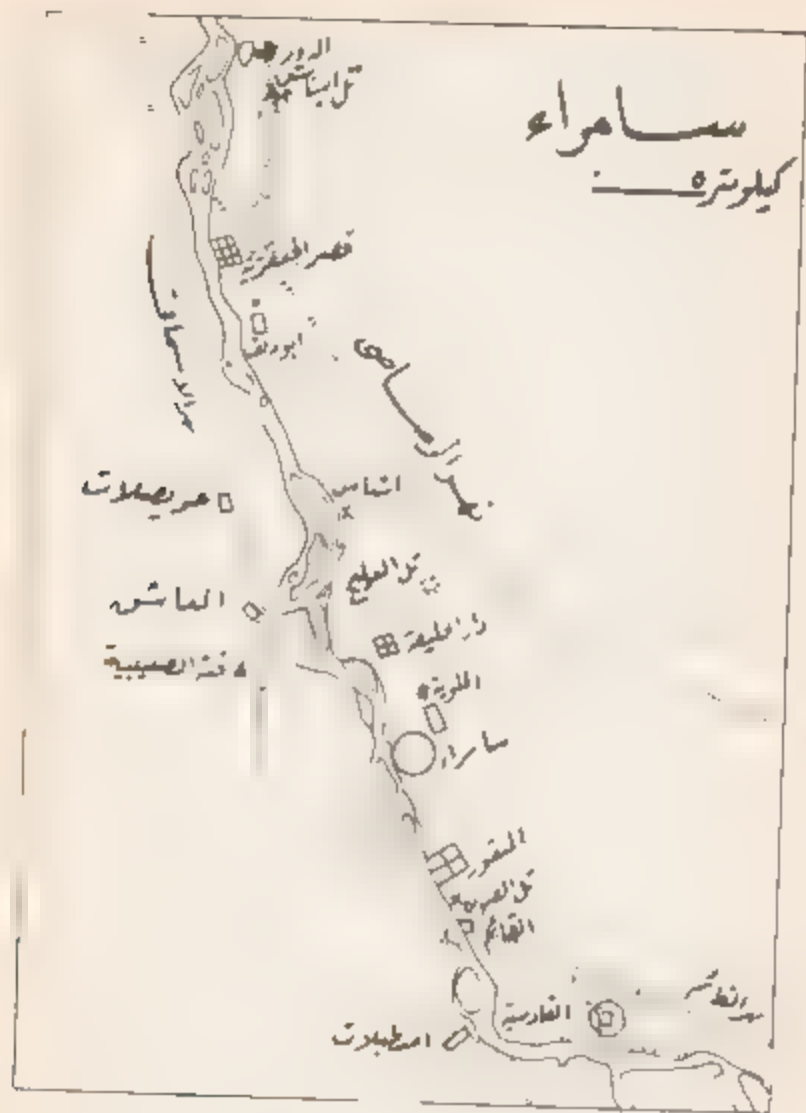 سامراء
كيلومتر ٥
الدور
تل ابناش
قصر الجعفرية
ابودلف
نهر الاسحاقي
نهر الرصاصي
اشناس
حويصلات
تل العليج
العاشق
دار الخليفة
قبة الصليبية
الملوية
سامراء
المنقور
تل الصوان
القائم
القادسية
نهر القائم
اصطبلات